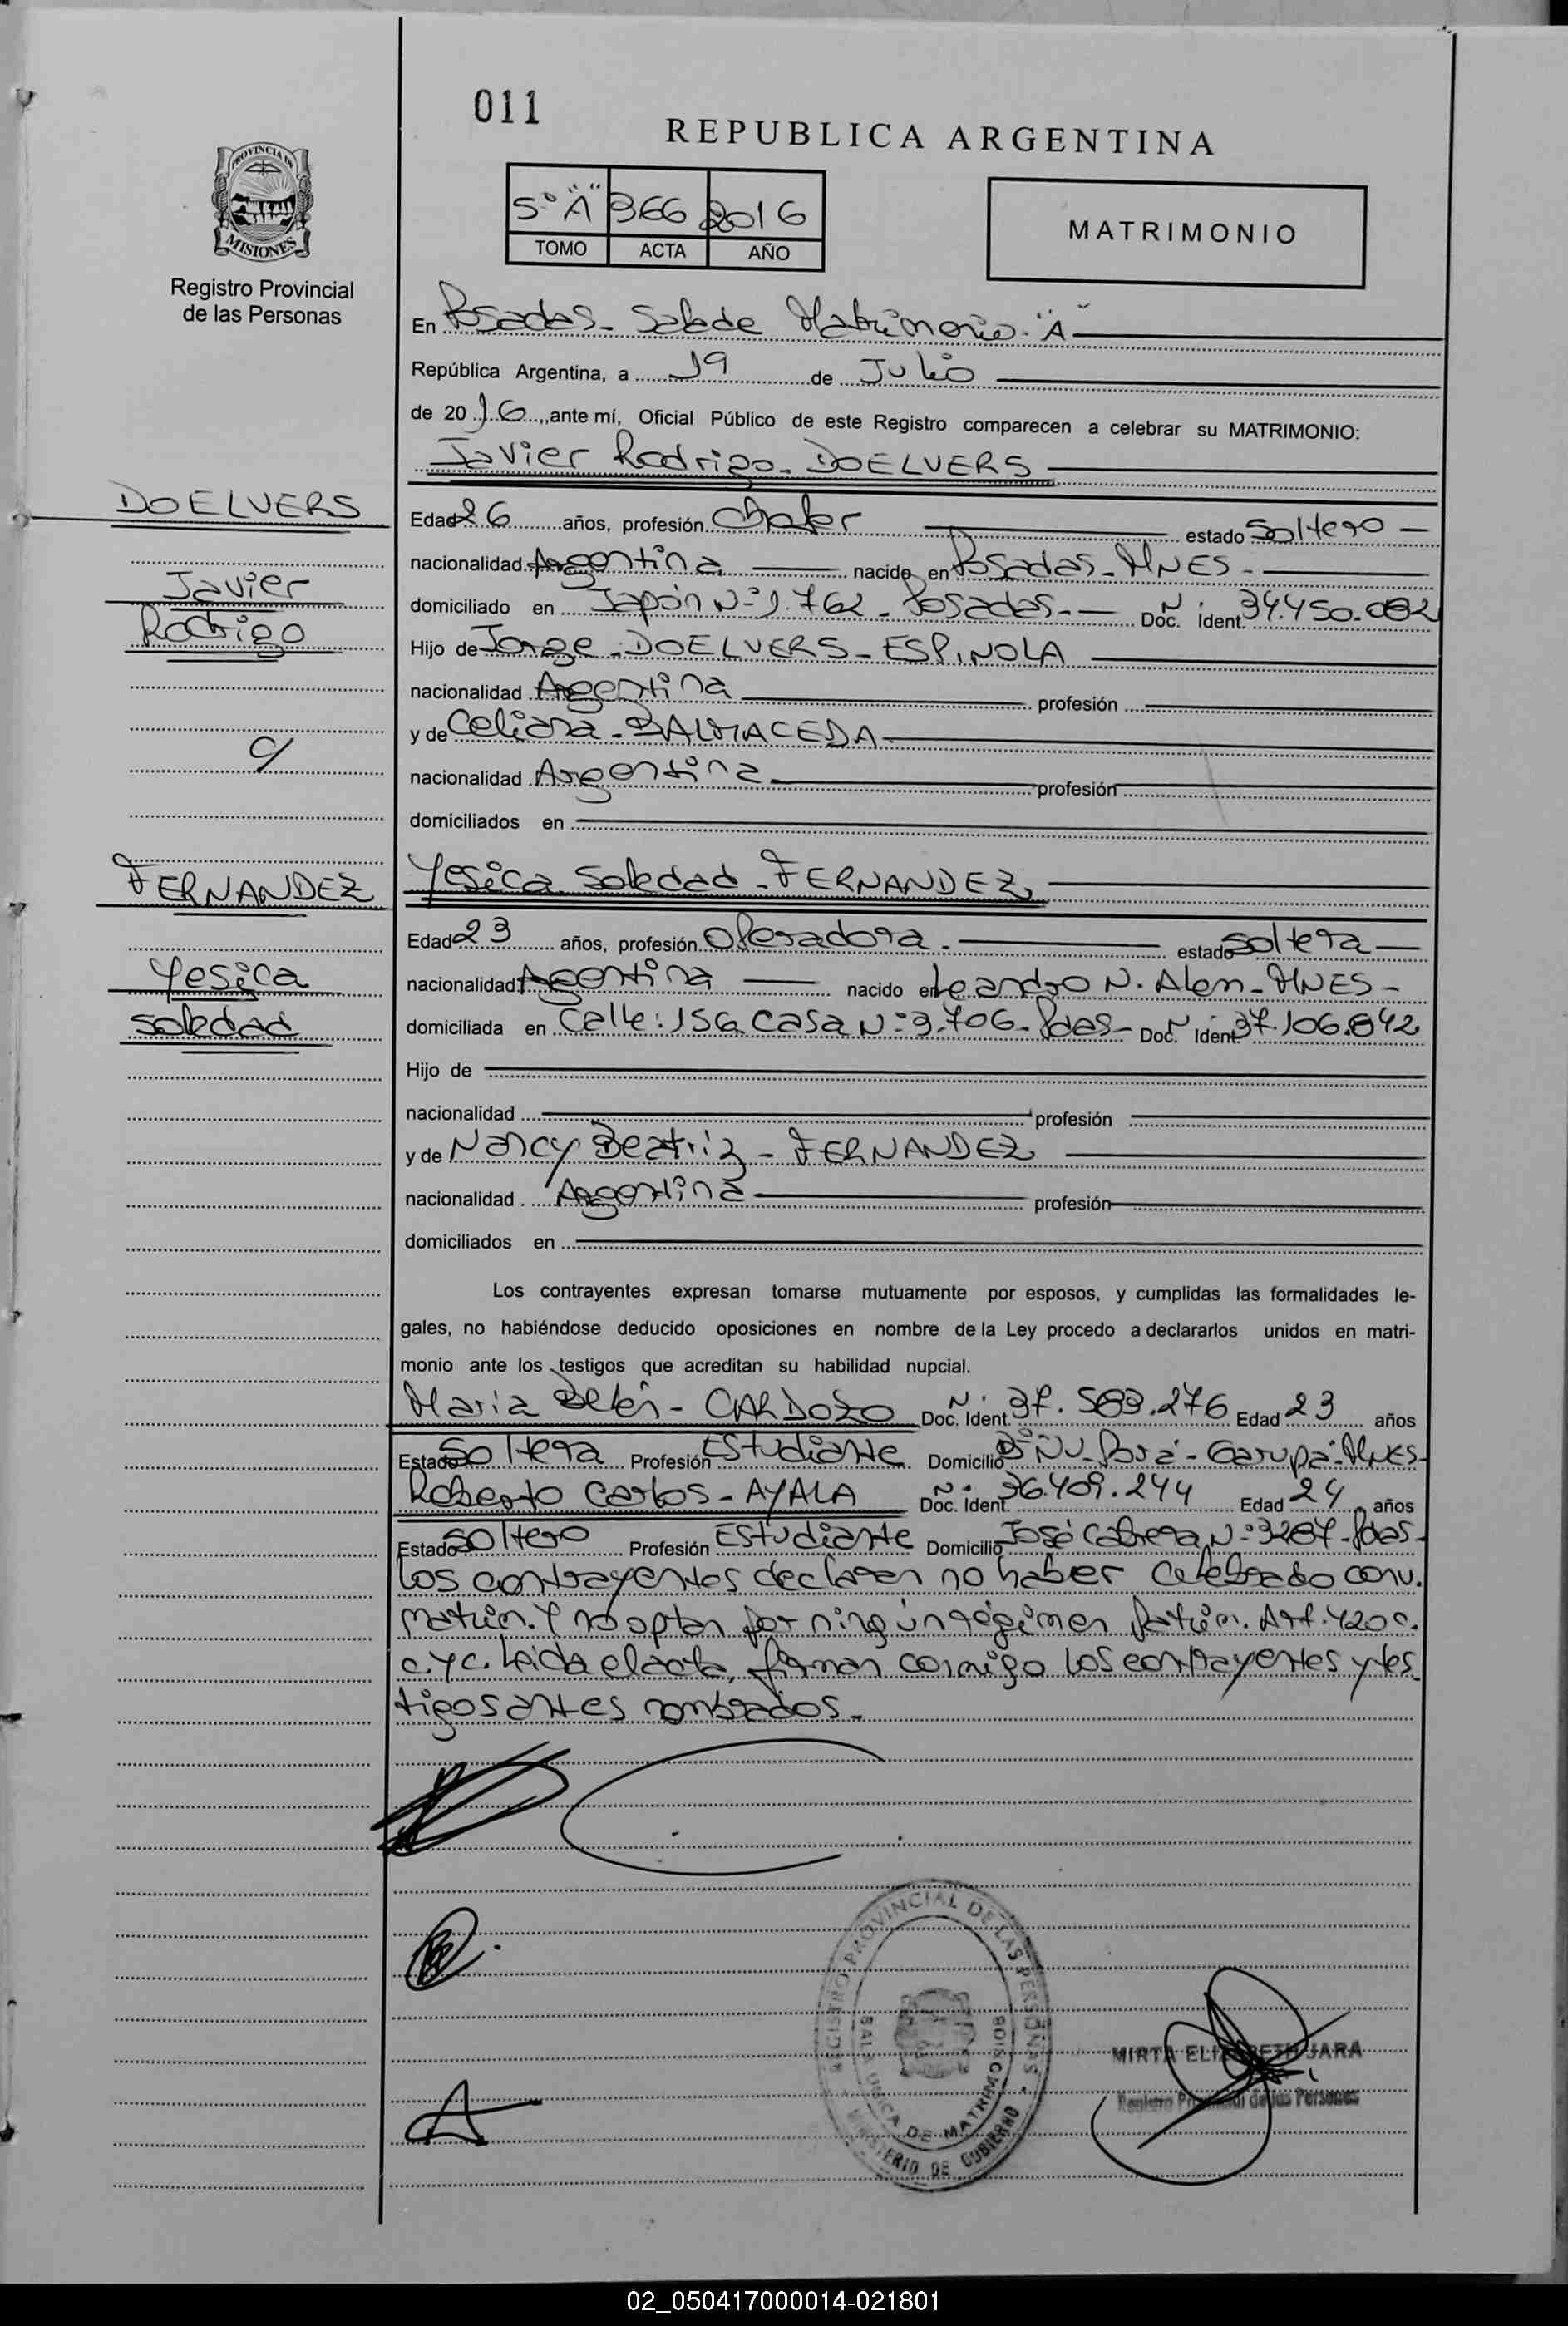 011
REPUBLICA ARGENTINA
PROVINCIA DE
MISIONES
Registro Provincial
de las Personas
5º "A" 366 2016
TOMO ACTA AÑO
MATRIMONIO
En Posadas - Sala de Matrimonio - "A"
República Argentina, a 19 de Julio
de 2016, ante mí, Oficial Público de este Registro comparecen a celebrar su MATRIMONIO:
Javier Rodrigo - DOELVERS
DOELVERS
Javier
Rodrigo
Edad 26 años, profesión Chofer estado Soltero
nacionalidad Argentina nacido en Posadas - MNES -
domiciliado en Japón Nº 1.762 - Posadas - Doc. Nº Ident. 34.450.082
Hijo de Jorge - DOELVERS - ESPINOLA
nacionalidad Argentina profesión
y de Celiana - BALMACEDA
c/
nacionalidad Argentina profesión
domiciliados en
FERNANDEZ
Yesica
Soledad
Yesica Soledad - FERNANDEZ
Edad 23 años, profesión Operadora - estado Soltera
nacionalidad Argentina nacido en Leandro N. Alem - MNES -
domiciliada en Calle: 156 Casa Nº 3.706 - Pdas - Doc. Nº Ident. 37.106.842
Hijo de
nacionalidad profesión
y de Nancy Beatriz - FERNANDEZ
nacionalidad Argentina profesión
domiciliados en
Los contrayentes expresan tomarse mutuamente por esposos, y cumplidas las formalidades le-
gales, no habiéndose deducido oposiciones en nombre de la Ley procedo a declararlos unidos en matri-
monio ante los testigos que acreditan su habilidad nupcial.
Maria Belén - CARDOZO Doc. Nº Ident. 37.583.276 Edad 23 años
Estado Soltera Profesión Estudiante Domicilio Bº Ñu - Porá - Garupá - MNES -
Roberto Carlos - AYALA Doc. Nº Ident. 36.409.244 Edad 24 años
Estado Soltero Profesión Estudiante Domicilio José Cabrera Nº 3287 - Pdas -
Los contrayentes declaran no haber celebrado conv.
matrim. Y no optan por ningún régimen patrim. Art. 420 c.
c. y c. Leida el acta, firman conmigo los contrayentes y tes
tigos antes nombrados -
REGISTRO PROVINCIAL DE LAS PERSONAS
SALA UNICA DE MATRIMONIOS
MINISTERIO DE GOBIERNO
MIRTA ELIZABETH JARA
Registro Provincial de las Personas
02_050417000014-021801